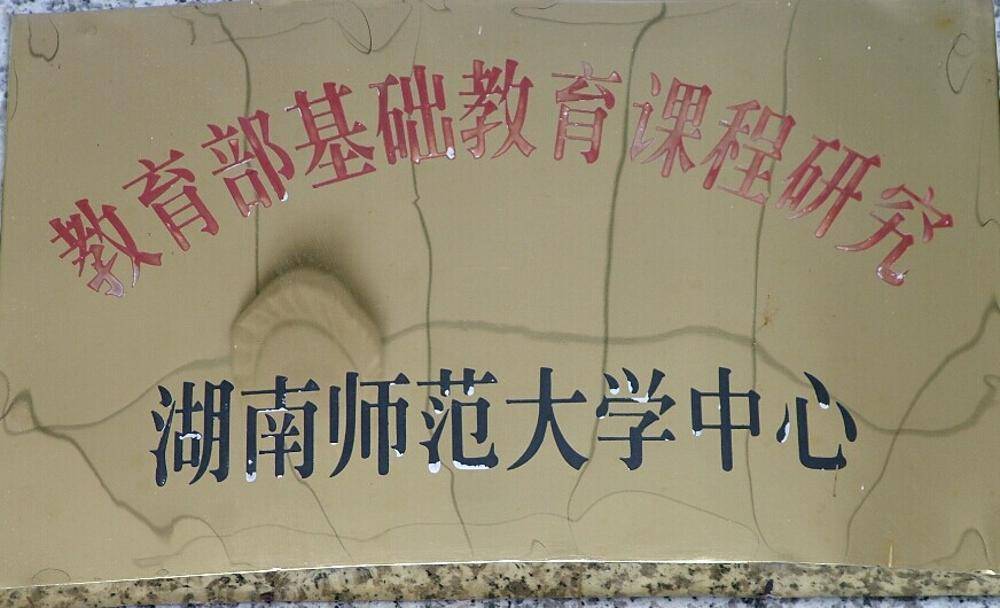 教育部基础教育课程研究
湖南师范大学中心